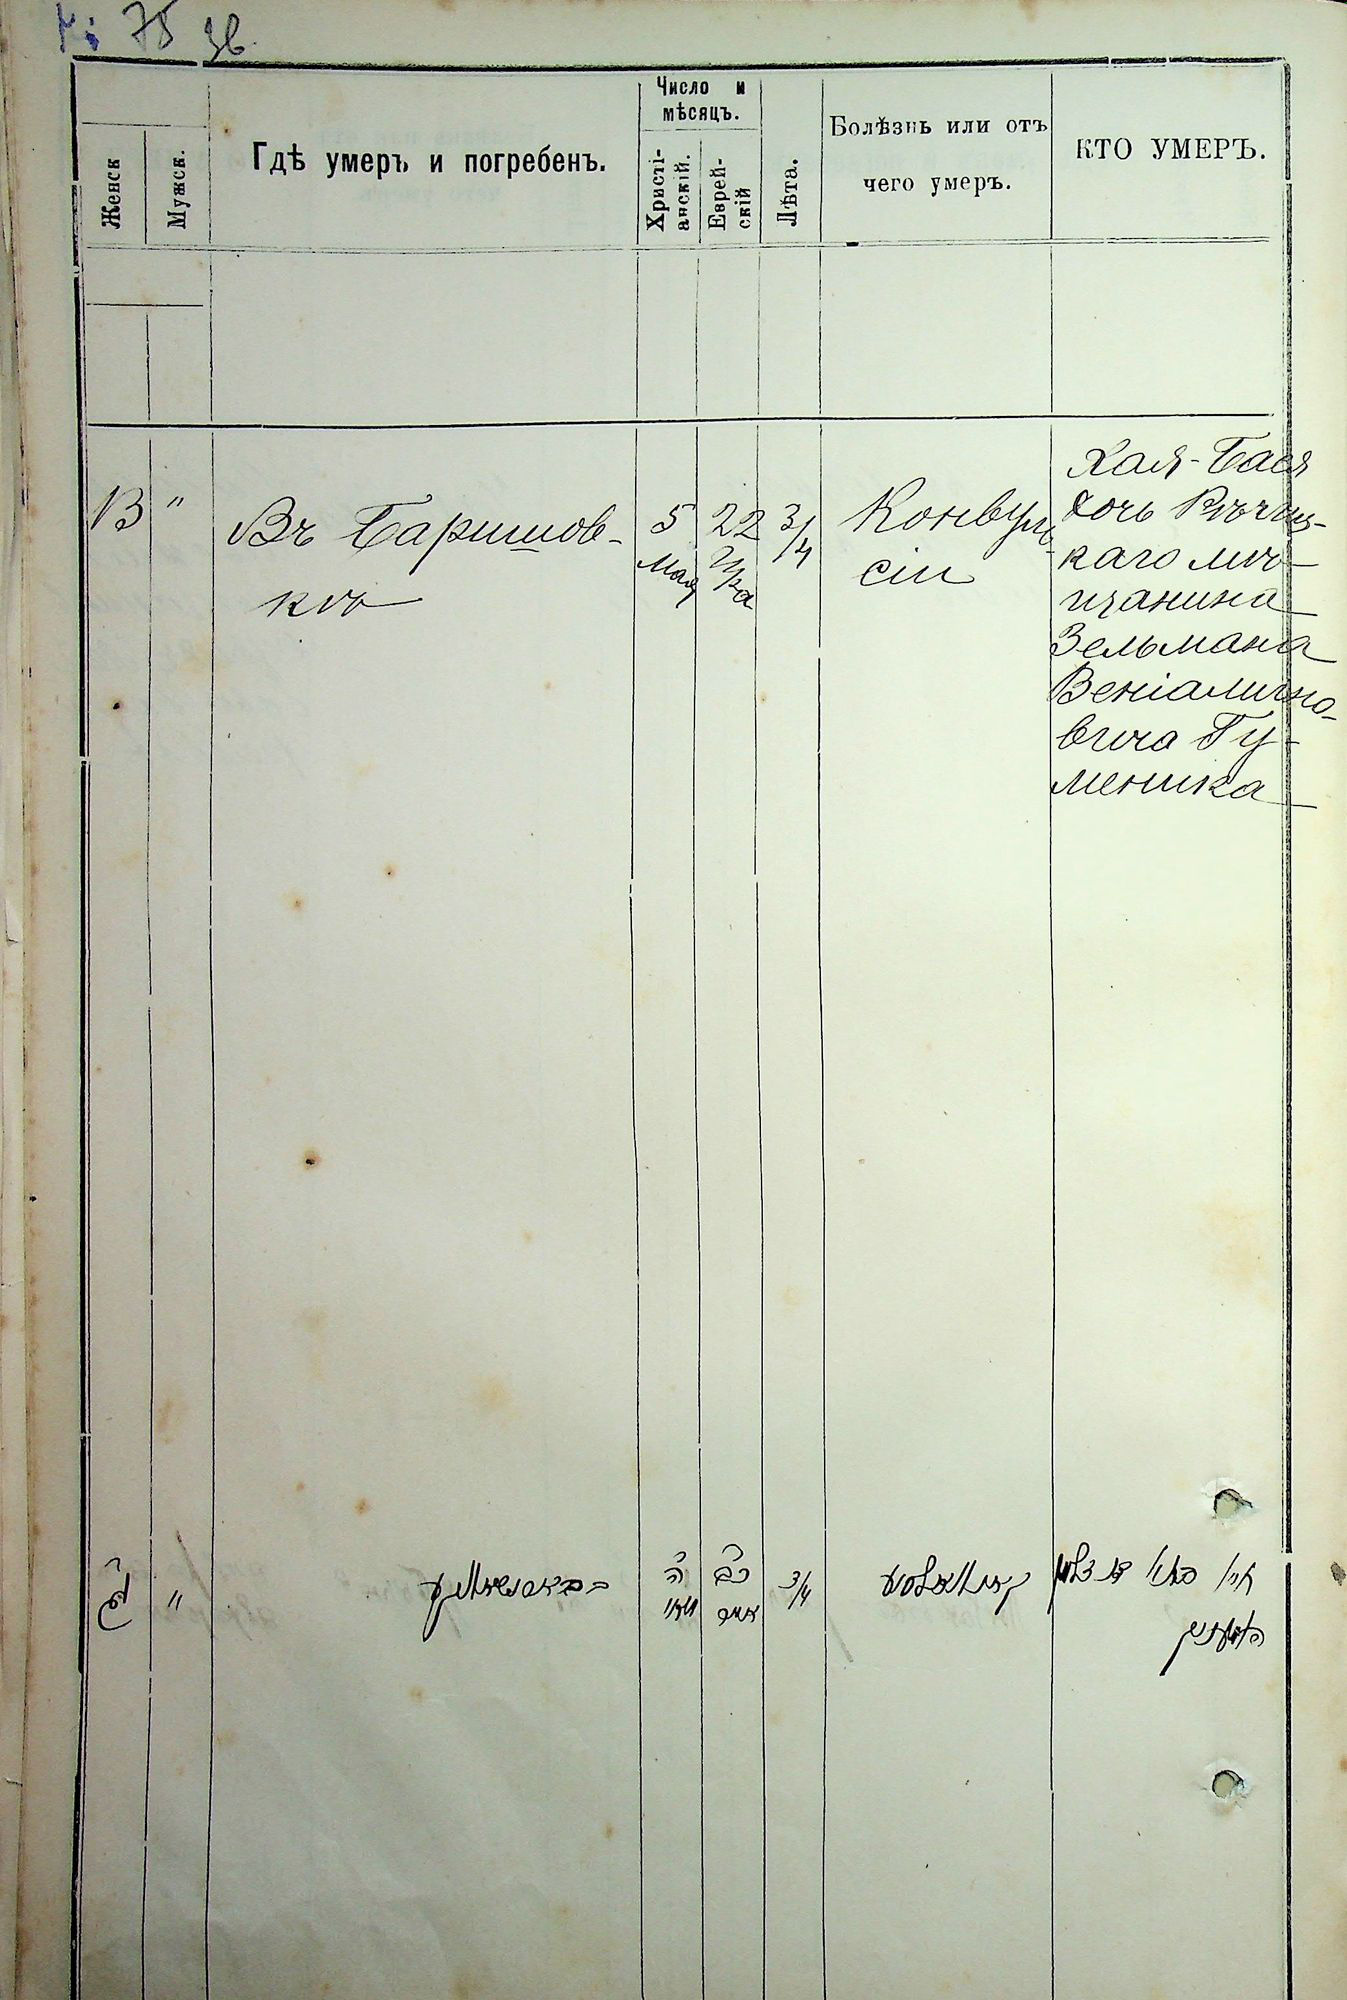 75 зв
Женск
Мужск.
Гдѣ умеръ и погребенъ.
Число и
мѣсяцъ.
Христі-
анскій.
Еврей-
скій
Лѣта.
Болѣзнь или отъ
чего умеръ.
КТО УМЕРЪ.
13
"
Въ Баришов-
кѣ
5
мая
22
Іяра
3/4
Конвуль-
сіи
Хая-Бася
дочь Рѣчиц-
каго мѣ-
щанина
Зельмана
Веніамино-
вича Гу-
меника
"
ה
מאי
כב
אייר
3/4
חי' באסי' בת זלמן